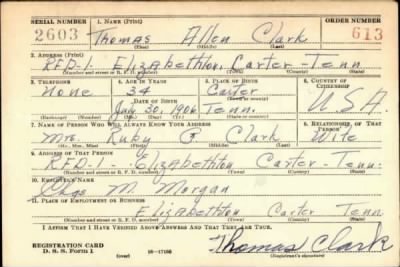 SERIAL NUMBER 1. NAME (Print) ORDER NUMBER
2603 Thomas Allen Clark 613
(First) (Middle) (Last)
2. ADDRESS (Print)
RFD-1- Elizabethton, Carter-Tenn
(Number and street or R. F. D. number) (Town) (County) (State)
3. TELEPHONE 4. AGE IN YEARS 5. PLACE OF BIRTH 6. COUNTRY OF CITIZENSHIP
None 34 Carter
DATE OF BIRTH (Town or county)
July 30, 1906 Tenn. U.S.A.
(Exchange) (Number) (Mo.) (Day) (Yr.) (State or country)
7. NAME OF PERSON WHO WILL ALWAYS KNOW YOUR ADDRESS 8. RELATIONSHIP OF THAT PERSON
Mrs. Ruby Clark Wife
(Mr., Mrs., Miss) (First) (Middle) (Last)
9. ADDRESS OF THAT PERSON
RFD-1- Elizabethton Carter-Tenn-
(Number and street or R. F. D. number) (Town) (County) (State)
10. EMPLOYER'S NAME
Chas M. Morgan
11. PLACE OF EMPLOYMENT OR BUSINESS
Elizabethton Carter Tenn
(Number and street or R. F. D. number) (Town) (County) (State)
I AFFIRM THAT I HAVE VERIFIED ABOVE ANSWERS AND THAT THEY ARE TRUE.
Thomas Clark
REGISTRATION CARD
D. S. S. FORM 1 (over) 16-17105 (Registrant's signature)